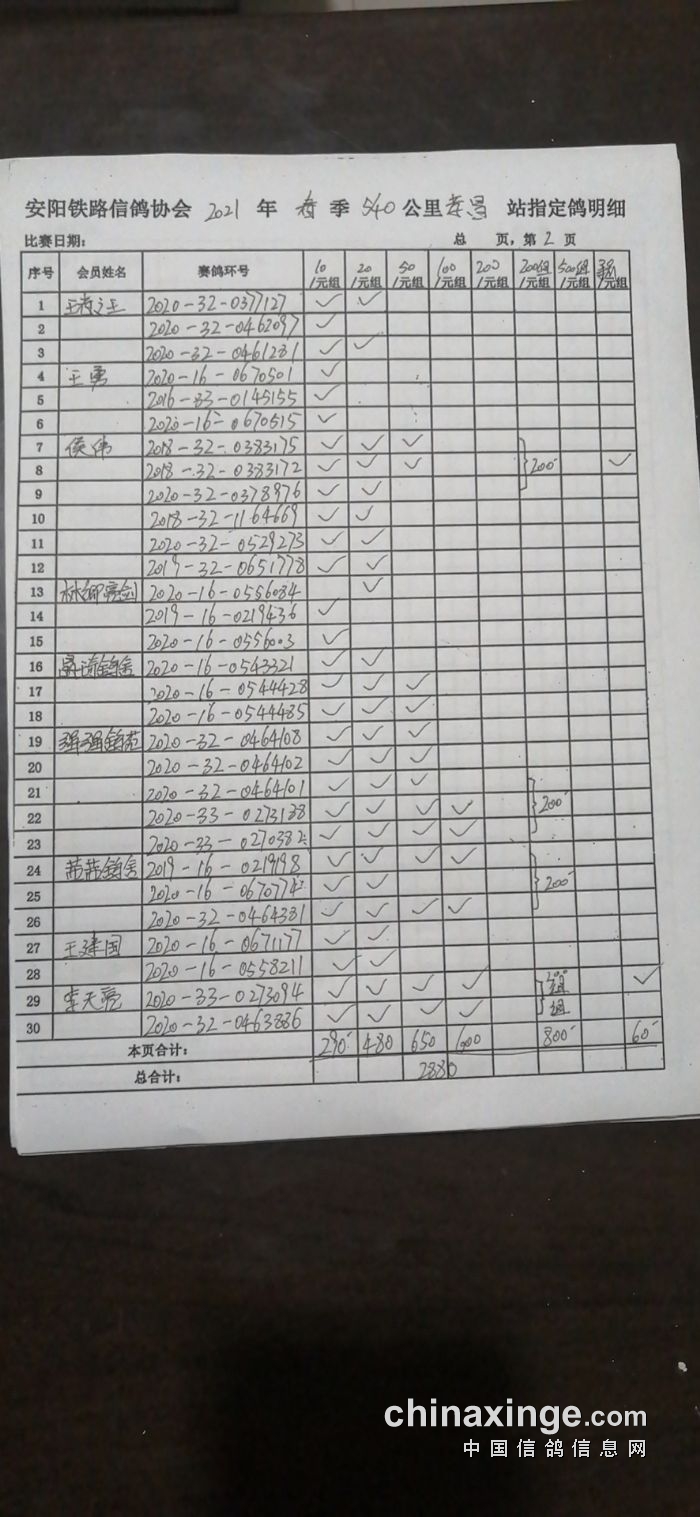 安阳铁路信鸽协会 2021 年 春 季 540 公里 孝昌 站指定鸽明细
比赛日期: 总 页, 第 2 页
序号 会员姓名 赛鸽环号 10/元组 20/元组 50/元组 100/元组 200/元组 200组/元组 500组/元组 /元组
1 2020-32-0377127 ✓ ✓
2 2020-32-0462097 ✓
3 2020-32-0461281 ✓ ✓
4 王勇 2020-16-0670501 ✓
5 2016-33-0145155 ✓
6 2020-16-0670515 ✓
7 侯伟 2018-32-0383175 ✓ ✓ ✓
8 2018-32-0383172 ✓ ✓ ✓ }200 ✓
9 2020-32-0378976 ✓ ✓
10 2018-32-1164669 ✓ ✓
11 2020-32-0529273 ✓ ✓
12 2019-32-0651778 ✓ ✓
13 2020-16-0556084 ✓
14 2019-16-0219436 ✓
15 2020-16-0556003 ✓
16 2020-16-0543321 ✓ ✓
17 2020-16-0544428 ✓ ✓ ✓
18 2020-16-0544485 ✓ ✓ ✓
19 2020-32-0464108 ✓ ✓ ✓
20 2020-32-0464102 ✓ ✓ ✓
21 2020-32-0464101 ✓ ✓ ✓
22 2020-33-0273138 ✓ ✓ ✓ ✓ }200
23 2020-33-0270382 ✓ ✓ ✓ ✓
24 茜茜鸽舍 2019-16-0219198 ✓ ✓ ✓ ✓
25 2020-16-0670774 ✓ ✓ }200
26 2020-32-0464381 ✓ ✓ ✓ ✓
27 王建国 2020-16-0671177 ✓ ✓
28 2020-16-0558211 ✓ ✓
29 李天亮 2020-33-0273094 ✓ ✓ ✓ ✓ ✓
30 2020-32-0463886 ✓ ✓ ✓ ✓
本页合计: 290 480 650 600 800 60
总合计: 2880
chinaxinge.com
中国信鸽信息网